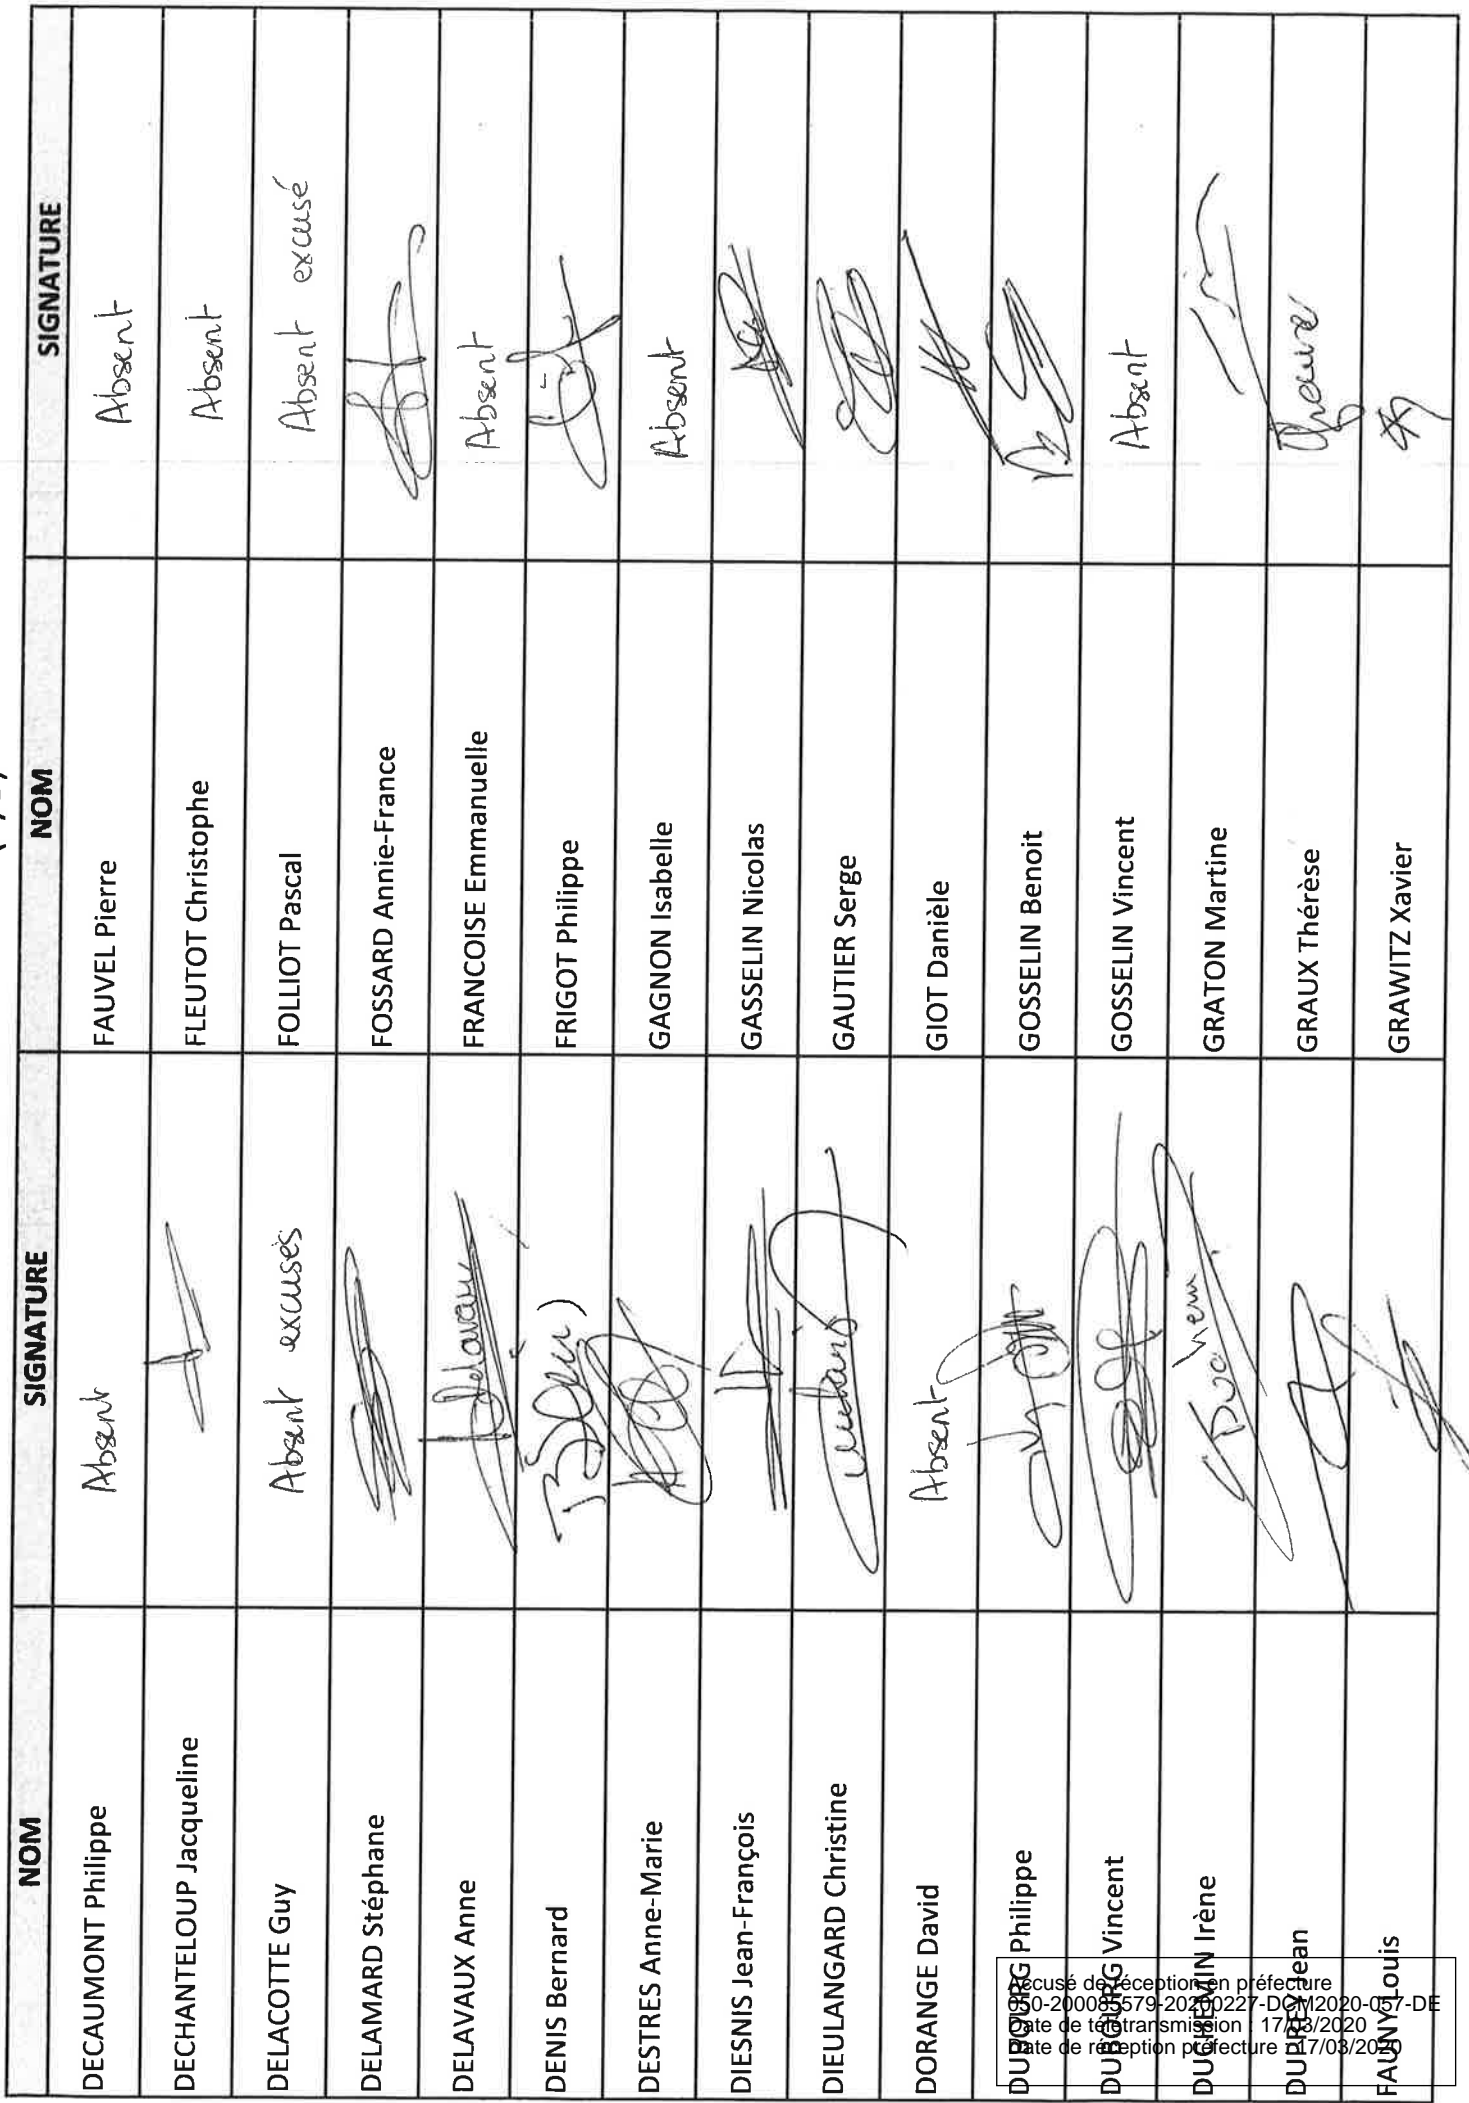 NOM SIGNATURE NOM SIGNATURE
DECAUMONT Philippe Absent FAUVEL Pierre Absent
DECHANTELOUP Jacqueline FLEUTOT Christophe Absent
DELACOTTE Guy Absent excusés FOLLIOT Pascal Absent excusé
DELAMARD Stéphane FOSSARD Annie-France
DELAVAUX Anne Delavaux FRANCOISE Emmanuelle Absent
DENIS Bernard FRIGOT Philippe
DESTRES Anne-Marie GAGNON Isabelle Absent
DIESNIS Jean-François GASSELIN Nicolas
DIEULANGARD Christine GAUTIER Serge
DORANGE David Absent GIOT Danièle
DUBOURG Philippe GOSSELIN Benoit
DUBOURG Vincent GOSSELIN Vincent Absent
DUCHEMIN Irène GRATON Martine
DUPREY Jean GRAUX Thérèse Graux
FAUNY Louis GRAWITZ Xavier
Accusé de réception en préfecture
050-200085579-20200227-DCM2020-057-DE
Date de télétransmission : 17/03/2020
Date de réception préfecture : 17/03/2020